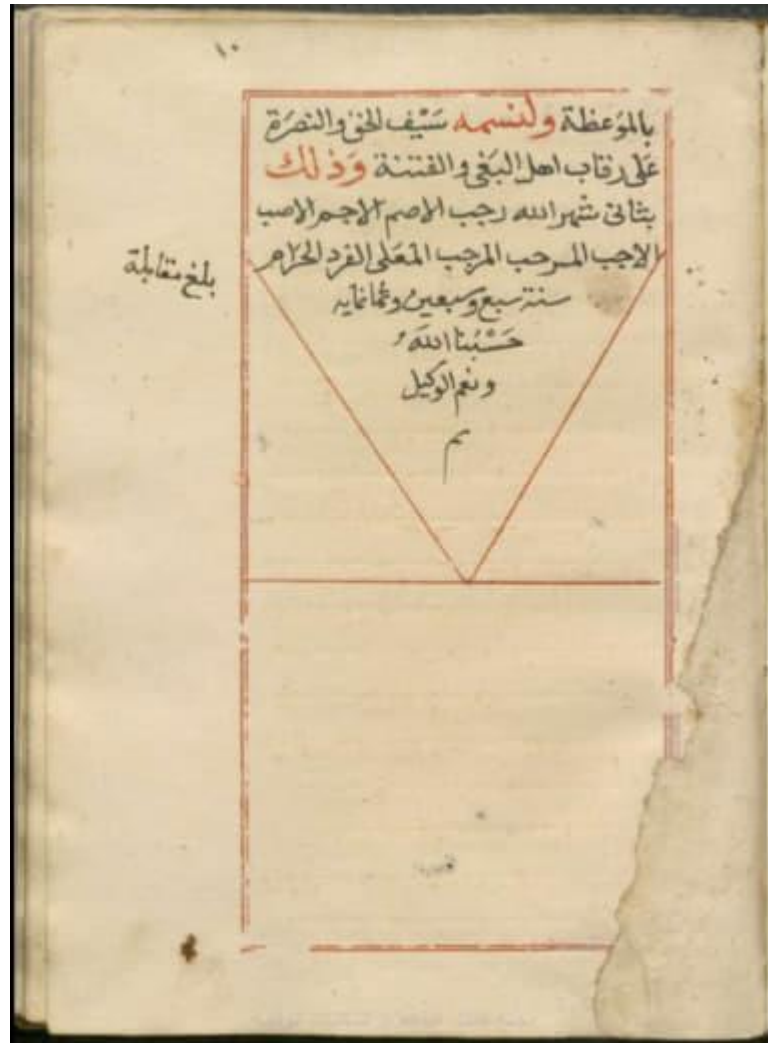 ١٠
بالمَوعظة ولنسمه سَيْف الحَق والنصرَة
عَلى رقاب اهل البَغى والفتنة وَذلك
بثانى شهر الله رجب الاصم الاجم الاصب
الاجب المرحب المرجب المعَلى الفرد الحرَام
بلغ مقابلة
سنة سبع وسبعين وثمانمايه
حَسْبُنا اللهُ
ونعم الوكيل
تم